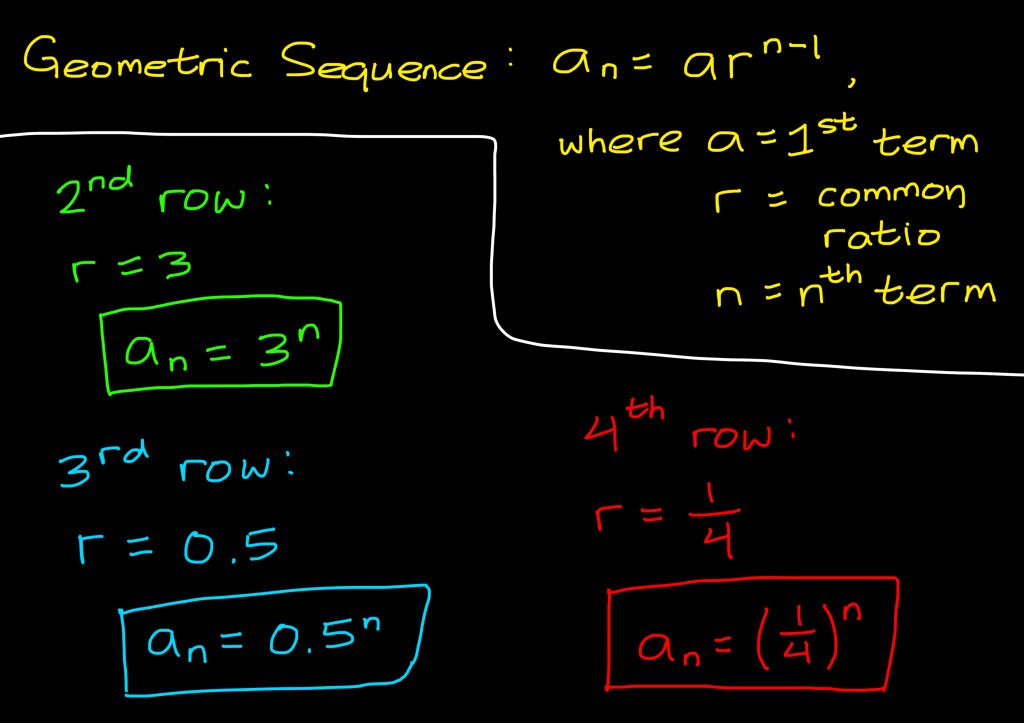 Geometric Sequence: aₙ = arⁿ⁻¹,
where a = 1ˢᵗ term
r = common
ratio
n = nᵗʰ term
2ⁿᵈ row:
r = 3
aₙ = 3ⁿ
3ʳᵈ row:
r = 0.5
aₙ = 0.5ⁿ
4ᵗʰ row:
r = 1/4
aₙ = (1/4)ⁿ